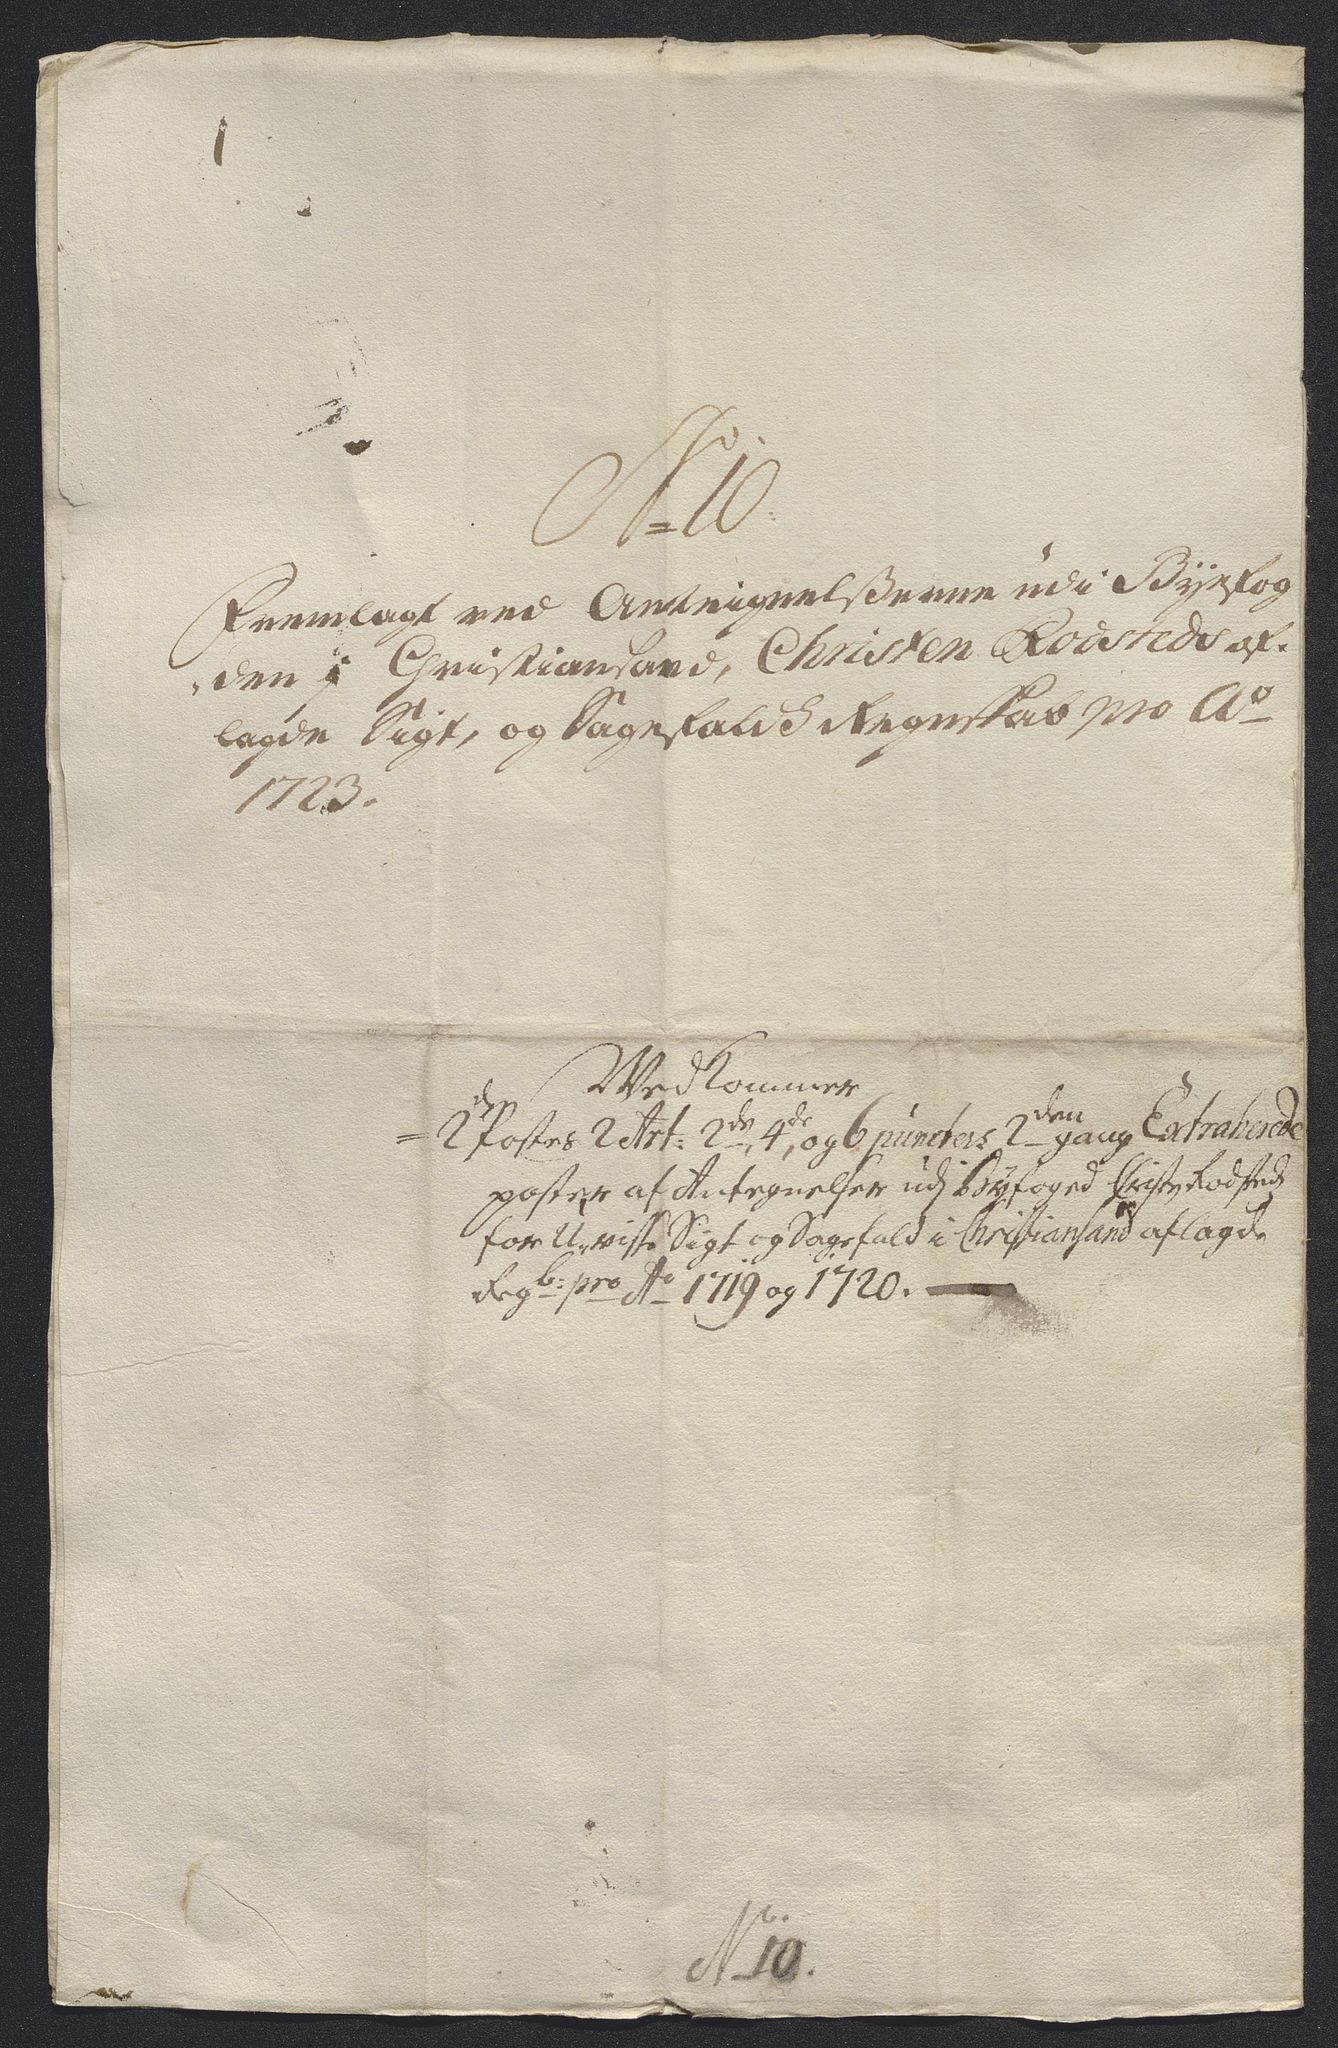 No 10.
Fremlagt ved Anteignelßerne udi Byefog
den i Christiansand, Christen Rodsteds af-
lagde Sigt, og Sagefalds Regnskab pro Ao
1723.
Vedkommer
2den Postes 2 Art: 2de, 4de, og 6 puncters 2den gang Extraherede
poster af Antegnelser udj Byfoged Christen Rodsteds
for U-visse Sigt og Sagefald i Christiansand aflagde
Regb: pro Ao 1719 og 1720.
No 10.